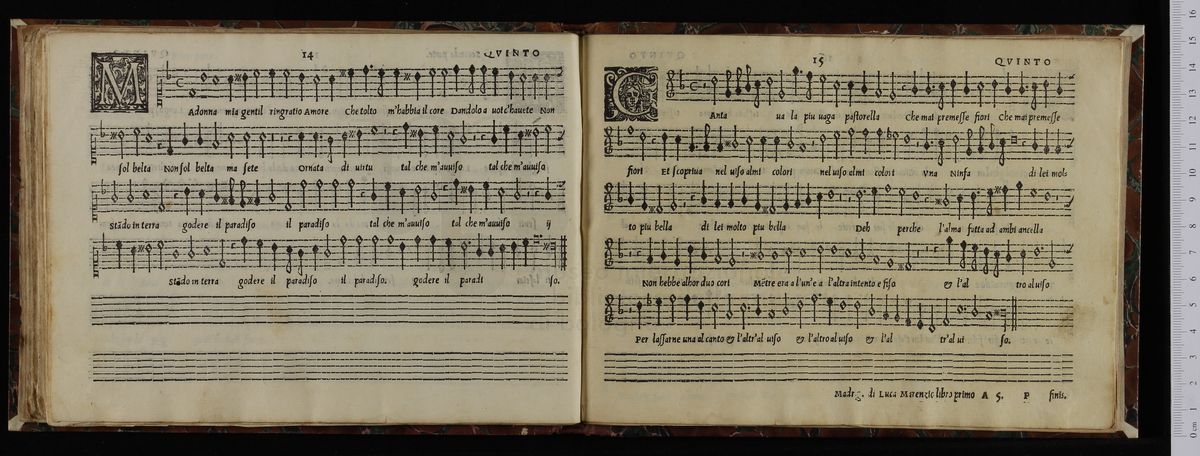 14
QVINTO
MAdonna mia gentil ringratio Amore Che tolto m'habbia il core Dandolo a uoi c'hauete Non
sol belta Non sol belta ma sete Ornata di uirtu tal che m'auuiso tal che m'auuiso
Stādo in terra godere il paradiso il paradiso tal che m'auuiso tal che m'auuiso ij
Stādo in terra godere il paradiso il paradiso. godere il paradi iso.
15
QVINTO
CAnta ua la piu uaga pastorella Che mai premesse fiori Che mai premesse
fiori Et scopriua nel uiso almi colori nel uiso almi colori Vna Ninfa di lei mol
to piu bella di lei molto piu bella Deh perche l'alma fatta ad ambi ancella
Non hebbe alhor duo cori Mētre era a l'un'e a l'altra intento e fiso & l'al tro al uiso
Per lassarne una al canto & l'altr'al uiso & l'altro al uiso & l'al tr'al ui so.
Madrig. di Luca Marenzio libro primo A 5. P finis.
0 cm 1 2 3 4 5 6 7 8 9 10 11 12 13 14 15 16